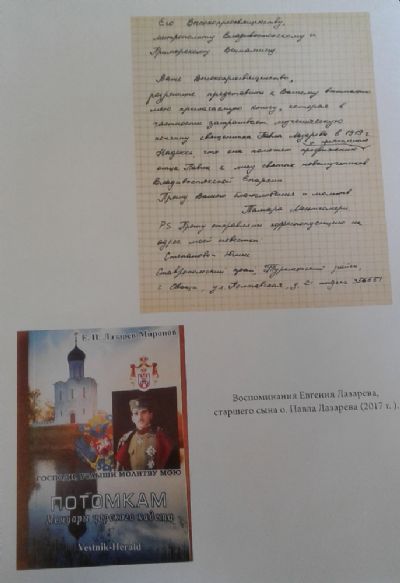 Его Высокопреосвященству,
митрополиту Владивостокскому и
Приморскому Вениамину
Ваше Высокопреосвященство,
разрешите представить к Вашему вниманию
мою прилагаемую книгу, которая в
частности затрагивает мученическую
кончину священника Павла Лазарева в 1919 г
Надеюсь что она поможет
отца Павла к лику святых новомучеников
Владивостокской Епархии
Прошу Вашего благословения и молитв
Тамара
PS Прошу отправлять корреспонденцию на
адрес моей
Степановой
Ставропольский край, район,
г. ул. Полтавская, д. 21 индекс
Е. П. Лазарев-Миронов
ГОСПОДИ, УСЛЫШИ МОЛИТВУ МОЮ
ПОТОМКАМ
Мемуары царского кадета
Vestnik-Herald
Воспоминания Евгения Лазарева,
старшего сына о. Павла Лазарева (2017 г.).